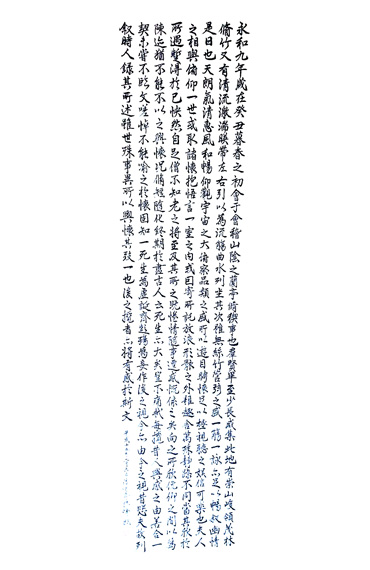 永和九年歲在癸丑暮春之初會于會稽山陰之蘭亭脩稧事也羣賢畢至少長咸集此地有崇山峻領茂林
脩竹又有清流激湍暎帶左右引以為流觴曲水列坐其次雖無絲竹管弦之盛一觴一詠亦足以暢敘幽情
是日也天朗氣清惠風和暢仰觀宇宙之大俯察品類之盛所以遊目騁懷足以極視聽之娛信可樂也夫人
之相與俯仰一世或取諸懷抱悟言一室之內或因寄所託放浪形骸之外雖趣舍萬殊靜躁不同當其欣於
所遇蹔得於己怏然自足僧不知老之將至及其所之既惓情隨事遷感慨係之矣向之所欣俛仰之間以為
陳迹猶不能不以之興懷況脩短隨化終期於盡古人云死生亦大矣豈不痛哉每攬昔人興感之由若合一
契未嘗不臨文嗟悼不能喻之於懷固知一死生為虛誕齊彭殤為妄作後之視今亦由今之視昔悲夫故列
敘時人錄其所述雖世殊事異所以興懷其致一也後之攬者亦將有感於斯文